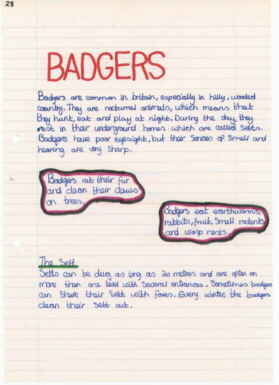 28
BADGERS
Badgers are common in britain, especially in hilly, wooded
country. They are nocturnal animals, which means that
they hunt, eat and play at night. During the day they
rest in their underground homes which are called Setts.
Badgers have poor eyesight, but their senses of Smell and
hearing are very sharp.
Badgers rub their fur
and clean their claws
on trees.
Badgers eat earthworms,
rabbits, fruit, Small rodents
and wasp nests.
The Sett
Setts can be dug as long as 20 metres and are often on
more than one level with several entrances. Sometimes badgers
can Share their Setts with foxes. Every winter the badgers
clean their Sett out.